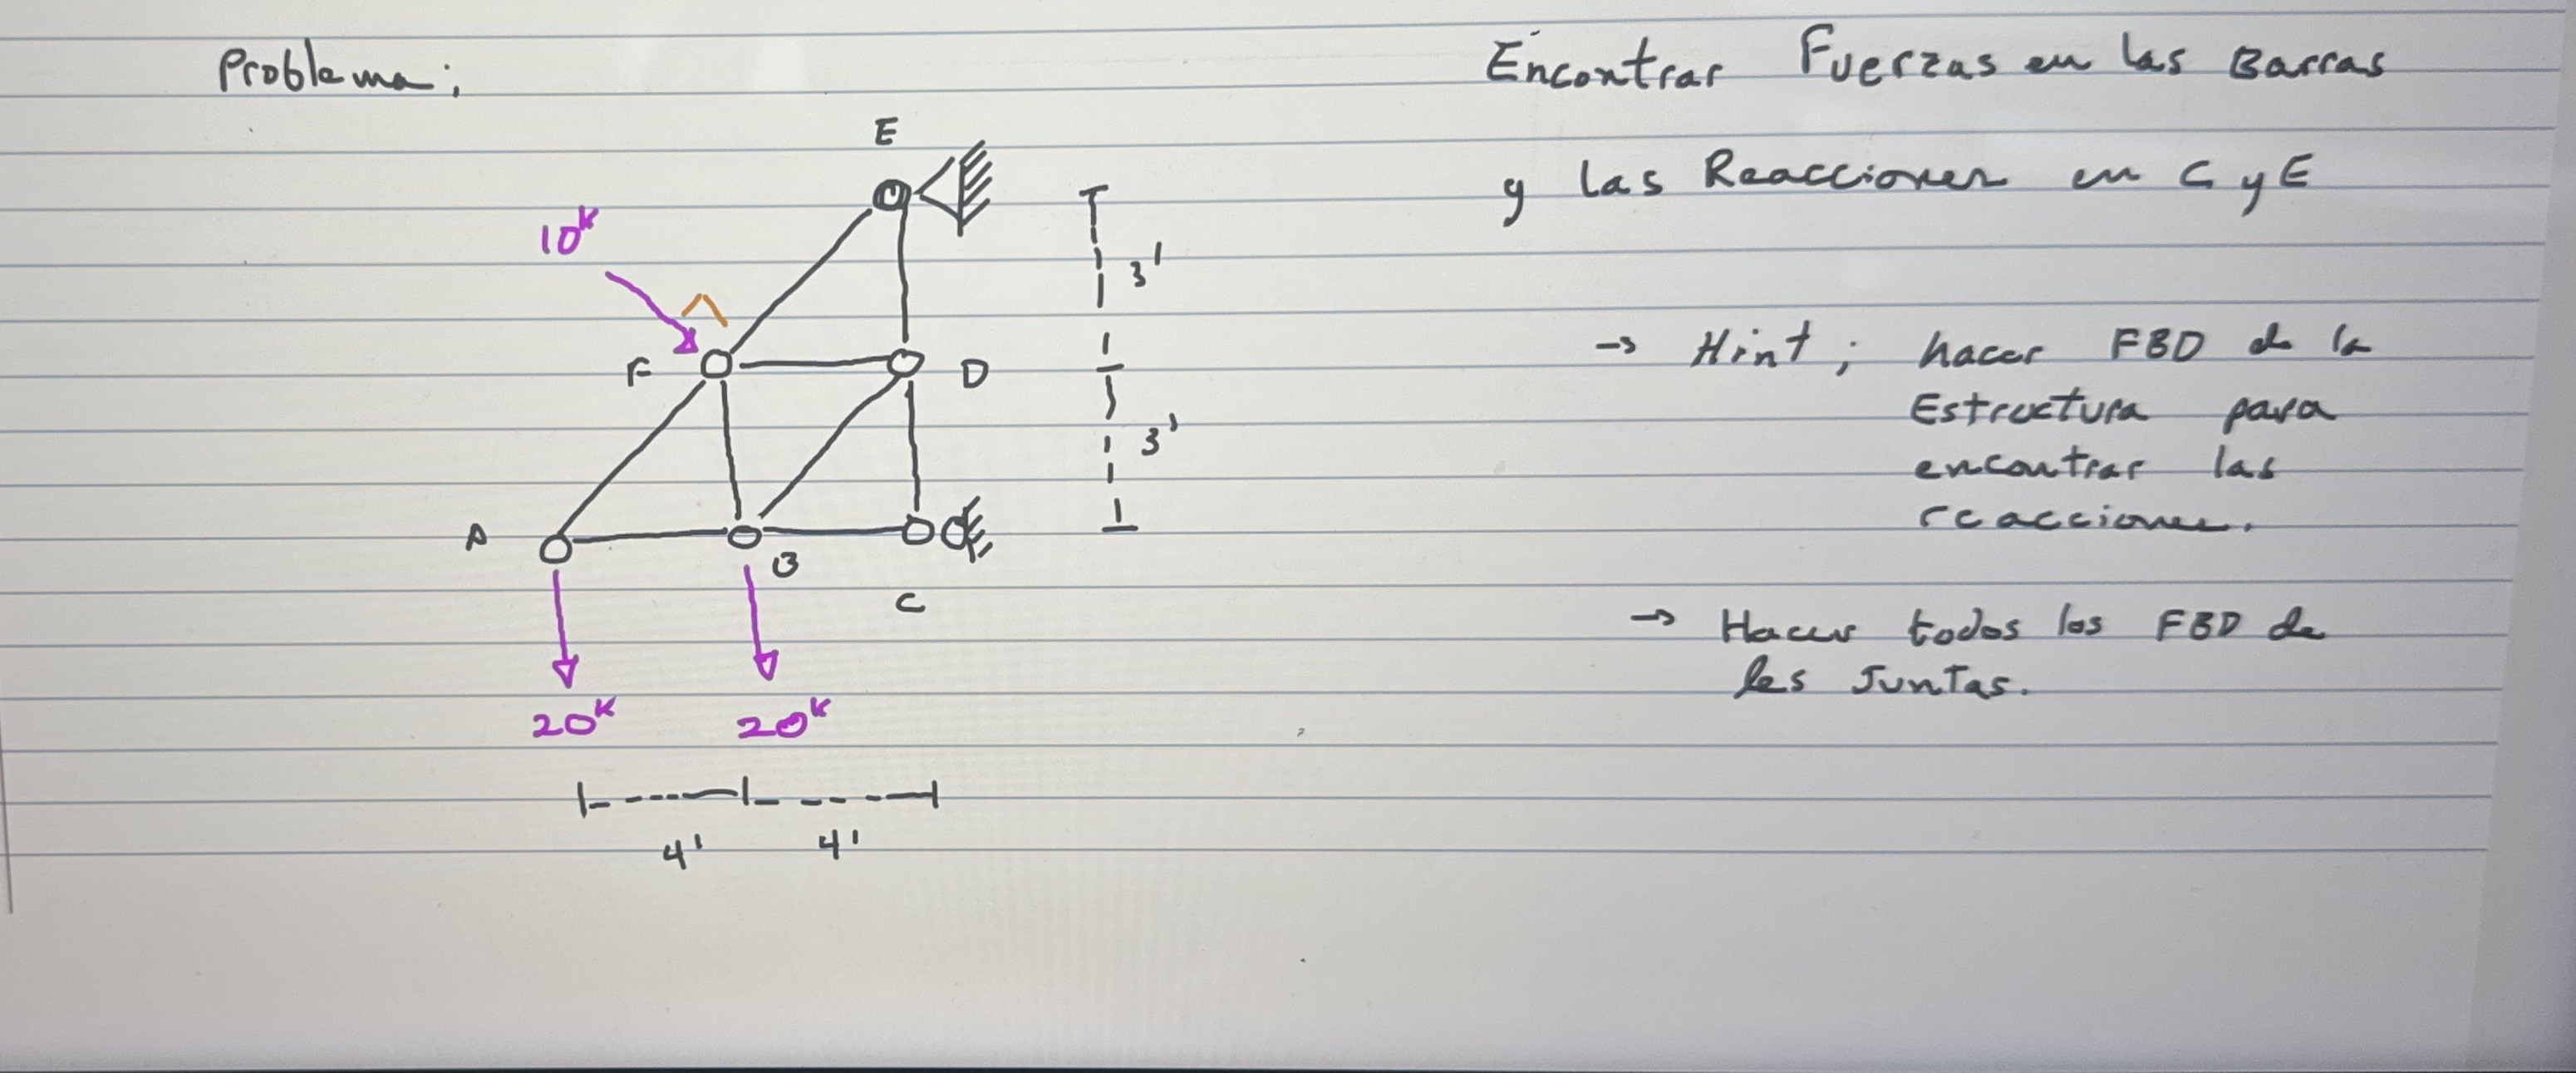 Problema;
Encontrar Fuerzas en las Barras
y las Reacciones en C y E
E
10k
3'
F
D
→ Hint; hacer FBD de la
Estructura para
encontrar las
reacciones.
3'
A
B
C
→ Hacer todos los FBD de
las Juntas.
20k
20k
4'
4'